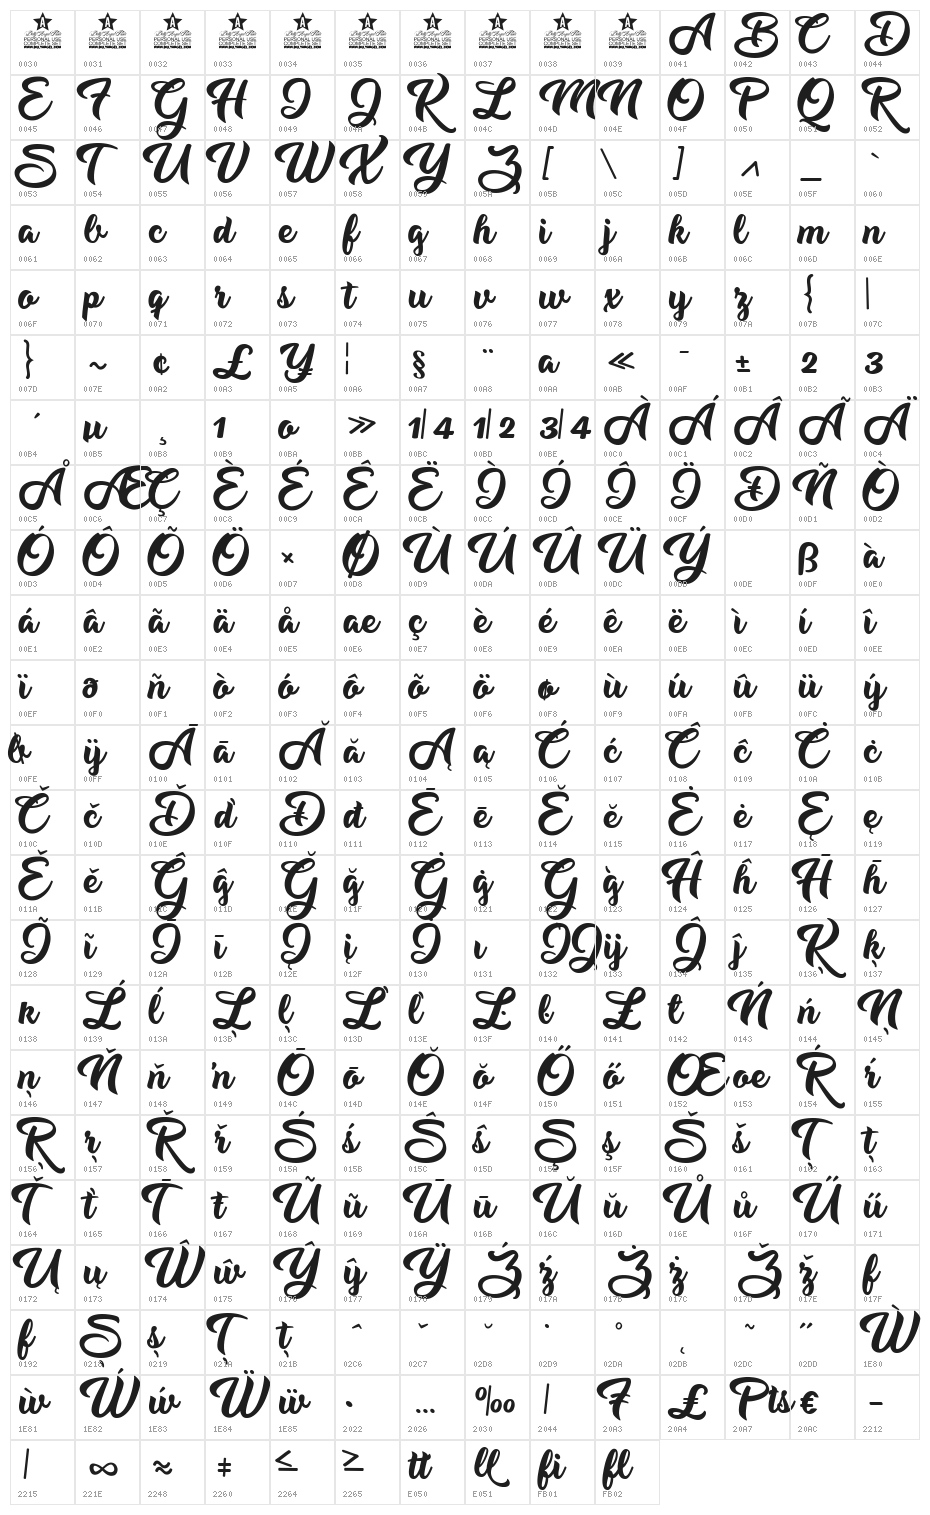 PERSONAL USE PERSONAL USE PERSONAL USE PERSONAL USE PERSONAL USE PERSONAL USE PERSONAL USE PERSONAL USE PERSONAL USE PERSONAL USE A B C D
COMPLETE SET COMPLETE SET COMPLETE SET COMPLETE SET COMPLETE SET COMPLETE SET COMPLETE SET COMPLETE SET COMPLETE SET COMPLETE SET
0030 0031 0032 0033 0034 0035 0036 0037 0038 0039 0041 0042 0043 0044
E F G H I J K L M N O P Q R
0045 0046 0047 0048 0049 004A 004B 004C 004D 004E 004F 0050 0051 0052
S T U V W X Y Z [ \ ] ^ _ `
0053 0054 0055 0056 0057 0058 0059 005A 005B 005C 005D 005E 005F 0060
a b c d e f g h i j k l m n
0061 0062 0063 0064 0065 0066 0067 0068 0069 006A 006B 006C 006D 006E
o p q r s t u v w x y z { |
006F 0070 0071 0072 0073 0074 0075 0076 0077 0078 0079 007A 007B 007C
} ~ ¢ £ ¥ ¦ § ¨ ª « ¯ ± ² ³
007D 007E 00A2 00A3 00A5 00A6 00A7 00A8 00AA 00AB 00AF 00B1 00B2 00B3
´ µ ¸ ¹ º » 1/4 1/2 3/4 À Á Â Ã Ä
00B4 00B5 00B8 00B9 00BA 00BB 00BC 00BD 00BE 00C0 00C1 00C2 00C3 00C4
Å Æ Ç È É Ê Ë Ì Í Î Ï Ð Ñ Ò
00C5 00C6 00C7 00C8 00C9 00CA 00CB 00CC 00CD 00CE 00CF 00D0 00D1 00D2
Ó Ô Õ Ö × Ø Ù Ú Û Ü Ý ß à
00D3 00D4 00D5 00D6 00D7 00D8 00D9 00DA 00DB 00DC 00DD 00DE 00DF 00E0
á â ã ä å æ ç è é ê ë ì í î
00E1 00E2 00E3 00E4 00E5 00E6 00E7 00E8 00E9 00EA 00EB 00EC 00ED 00EE
ï ð ñ ò ó ô õ ö ø ù ú û ü ý
00EF 00F0 00F1 00F2 00F3 00F4 00F5 00F6 00F8 00F9 00FA 00FB 00FC 00FD
þ ÿ Ā ā Ă ă Ą ą Ć ć Ĉ ĉ Ċ ċ
00FE 00FF 0100 0101 0102 0103 0104 0105 0106 0107 0108 0109 010A 010B
Č č Ď ď Đ đ Ē ē Ĕ ĕ Ė ė Ę ę
010C 010D 010E 010F 0110 0111 0112 0113 0114 0115 0116 0117 0118 0119
Ě ě Ĝ ĝ Ğ ğ Ġ ġ Ģ ģ Ĥ ĥ Ħ ħ
011A 011B 011C 011D 011E 011F 0120 0121 0122 0123 0124 0125 0126 0127
Ĩ ĩ Ī ī Į į İ ı Ĳ ĳ Ĵ ĵ Ķ ķ
0128 0129 012A 012B 012E 012F 0130 0131 0132 0133 0134 0135 0136 0137
ĸ Ĺ ĺ Ļ ļ Ľ ľ Ŀ ŀ Ł ł Ń ń Ņ
0138 0139 013A 013B 013C 013D 013E 013F 0140 0141 0142 0143 0144 0145
ņ Ň ň ŉ Ō ō Ŏ ŏ Ő ő Œ œ Ŕ ŕ
0146 0147 0148 0149 014C 014D 014E 014F 0150 0151 0152 0153 0154 0155
Ŗ ŗ Ř ř Ś ś Ŝ ŝ Ş ş Š š Ţ ţ
0156 0157 0158 0159 015A 015B 015C 015D 015E 015F 0160 0161 0162 0163
Ť ť Ŧ ŧ Ũ ũ Ū ū Ŭ ŭ Ů ů Ű ű
0164 0165 0166 0167 0168 0169 016A 016B 016C 016D 016E 016F 0170 0171
Ų ų Ŵ ŵ Ŷ ŷ Ÿ Ź ź Ż ż Ž ž ſ
0172 0173 0174 0175 0176 0177 0178 0179 017A 017B 017C 017D 017E 017F
ƒ Ș ș Ț ț ˆ ˇ ˘ ˙ ˚ ˛ ˜ ˝ Ẁ
0192 0218 0219 021A 021B 02C6 02C7 02D8 02D9 02DA 02DB 02DC 02DD 1E80
ẁ Ẃ ẃ Ẅ ẅ • … ‰ ⁄ ₣ ₤ ₧ € −
1E81 1E82 1E83 1E84 1E85 2022 2026 2030 2044 20A3 20A4 20A7 20AC 2212
∕ ∞ ≈ ≠ ≤ ≥ tt ll fi fl
2215 221E 2248 2260 2264 2265 E050 E051 FB01 FB02